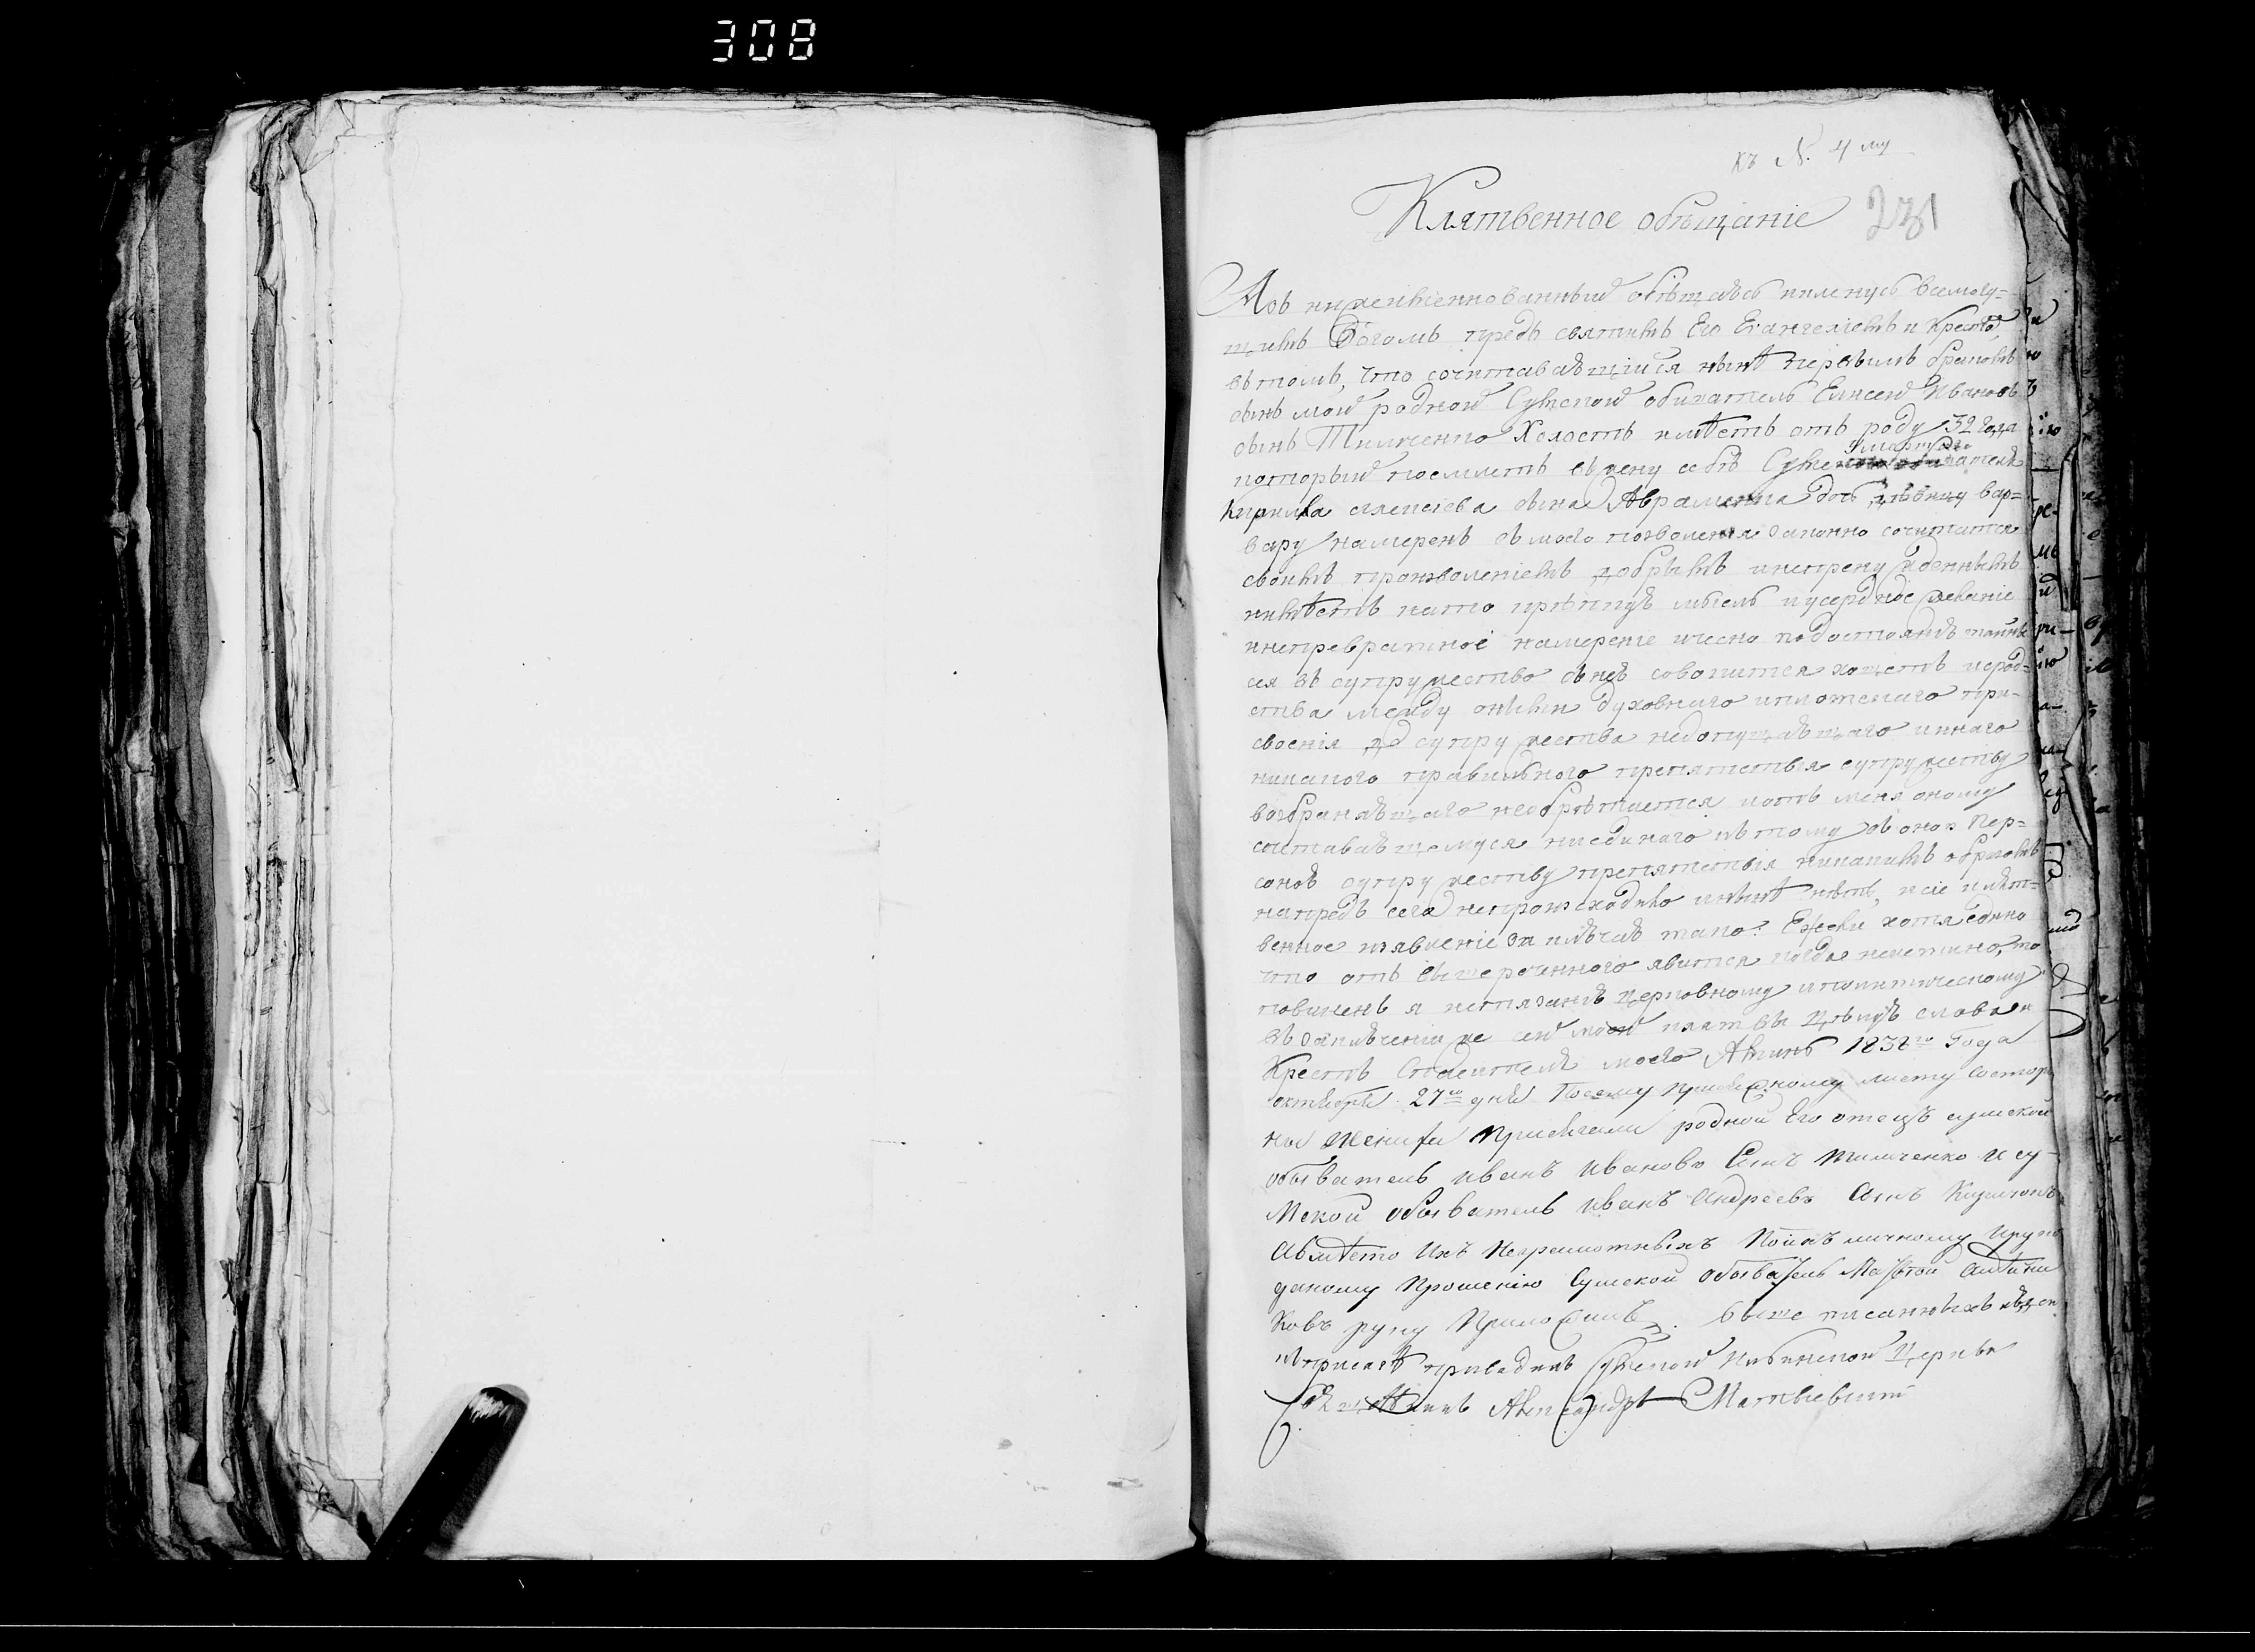 308
къ N. 4 му
Клятвенное обѣщаніе
231
Азъ нижеимѣннованный обѣщаюсь и кленусь всемогу=
щимъ Богомъ предъ святимъ Его Евангеліемъ и Кресто
въ томъ, что сочитавающийся нынѣ первымъ бракомъ
сынъ мой родной Сумской обиватель Елисей Ивановъ
сынъ Тимченко Холостъ имѣетъ отъ роду 32 года
который поемлетъ въ жену себѣ Сумск
Кирила Алексіева сына Авраменка дочь дѣвицу Вар=
вару намеренъ съ моего позволенія законно сочитатся
своимъ произволеніемъ добрымъ и непренужденнымъ
и имѣетъ на то мысль и усердное желаніе
и непревратное намереніе и чесно подостоянію тайны
сея въ супружество съ нею совокупится хощетъ и срод=
ства между оными духовнаго и плотскаго при=
своенія до супружества недопущающаго и инаго
никакого правильного препятствія супружеству
возбраняющаго необрѣтается и отъ меня оному
сочтавающемуся ни единаго къ тому съ оною Пер=
соною супружеству препятствія никакимъ образомъ
напредъ сего непроисходило и нынѣ нѣтъ, и сіе клят=
венное изявленіе заключаю тако: Ежели хотя едино
что отъ вышереченного явится когда неистинно, то
повиненъ я истязанію церковному и политическому
въ заключеніи же сей моей клятвы цѣлую слова и
Крестъ Спасителя моего Аминь 1838го Года
октября 27го дня По сему присяжному листу со сторо
ны жениха присягали родной Его отецъ сумской
обыватель Иванъ Ивановъ Сынъ Тимченко и су=
мской обыватель Иванъ Андреевъ Сынъ
а вмѣсто ихъ неграмотныхъ по ихъ личному и руко
даному прошенію Сумской обыватель
ковъ руку приложилъ. Выше писанныхъ людей
к присягѣ приводилъ Сумской церкви
Священникъ Александръ Матвіевичъ